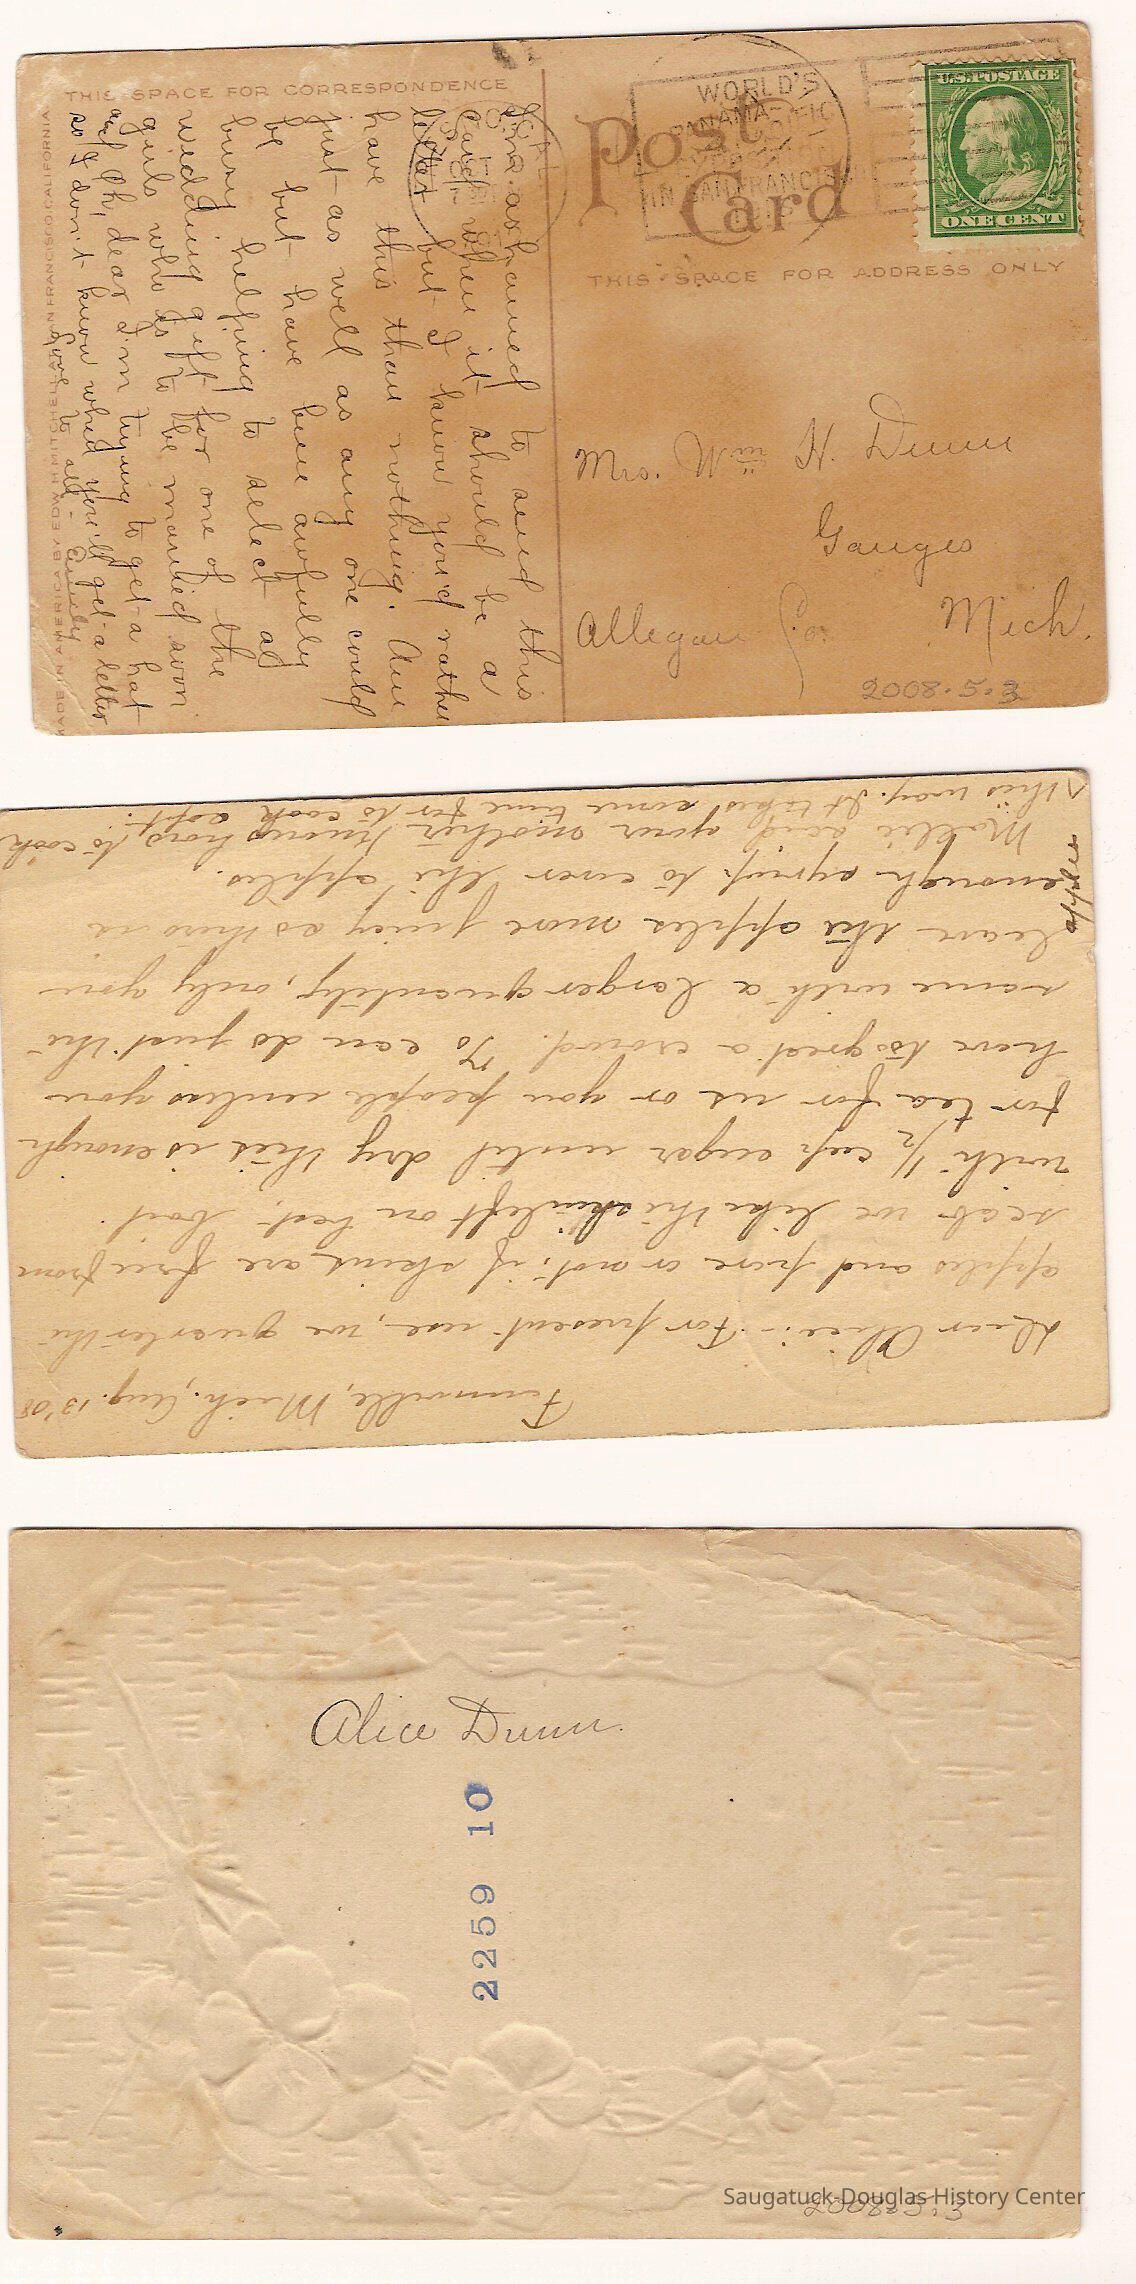 THIS SPACE FOR CORRESPONDENCE
I'm ashamed to send this
card when it should be a
letter but I know you'd rather
have this than nothing. Am
just as well as any one could
be but have been awfully
busy helping to select a
wedding gift for one of the
girls who is to be married soon.
Oh, dear I'm trying to get a hat
so I don't know when you'll get a letter
Love to all - Emily
MADE IN AMERICA BY EDW. H. MITCHELL, SAN FRANCISCO CALIFORNIA.
WORLD'S
PANAMA-
IN SAN FRANCISCO
Post
Card
U.S. POSTAGE
ONE CENT
THIS SPACE FOR ADDRESS ONLY
Mrs. Wm H. Dunn
Ganges
Allegan Co. Mich.
2008.5.3
Fennville, Mich., Aug. 13 '08
Dear Alice:- For present use, we quarter the
apples and pare or not, if skins are free from
scab we like the skin left on best, boil
with 1/2 cup sugar until dry this is enough
for tea for us or you people unless you
have to feed a crowd. To can do just the
same with a larger quantity, only you
leave the apples more juicy as there is
enough syrup to cover the apples.
Mollie said your mother knows how to cook
this way. It takes some time for to cook soft.
apples
Alice Dunn.
2259 10
2008.5.3
Saugatuck-Douglas History Center